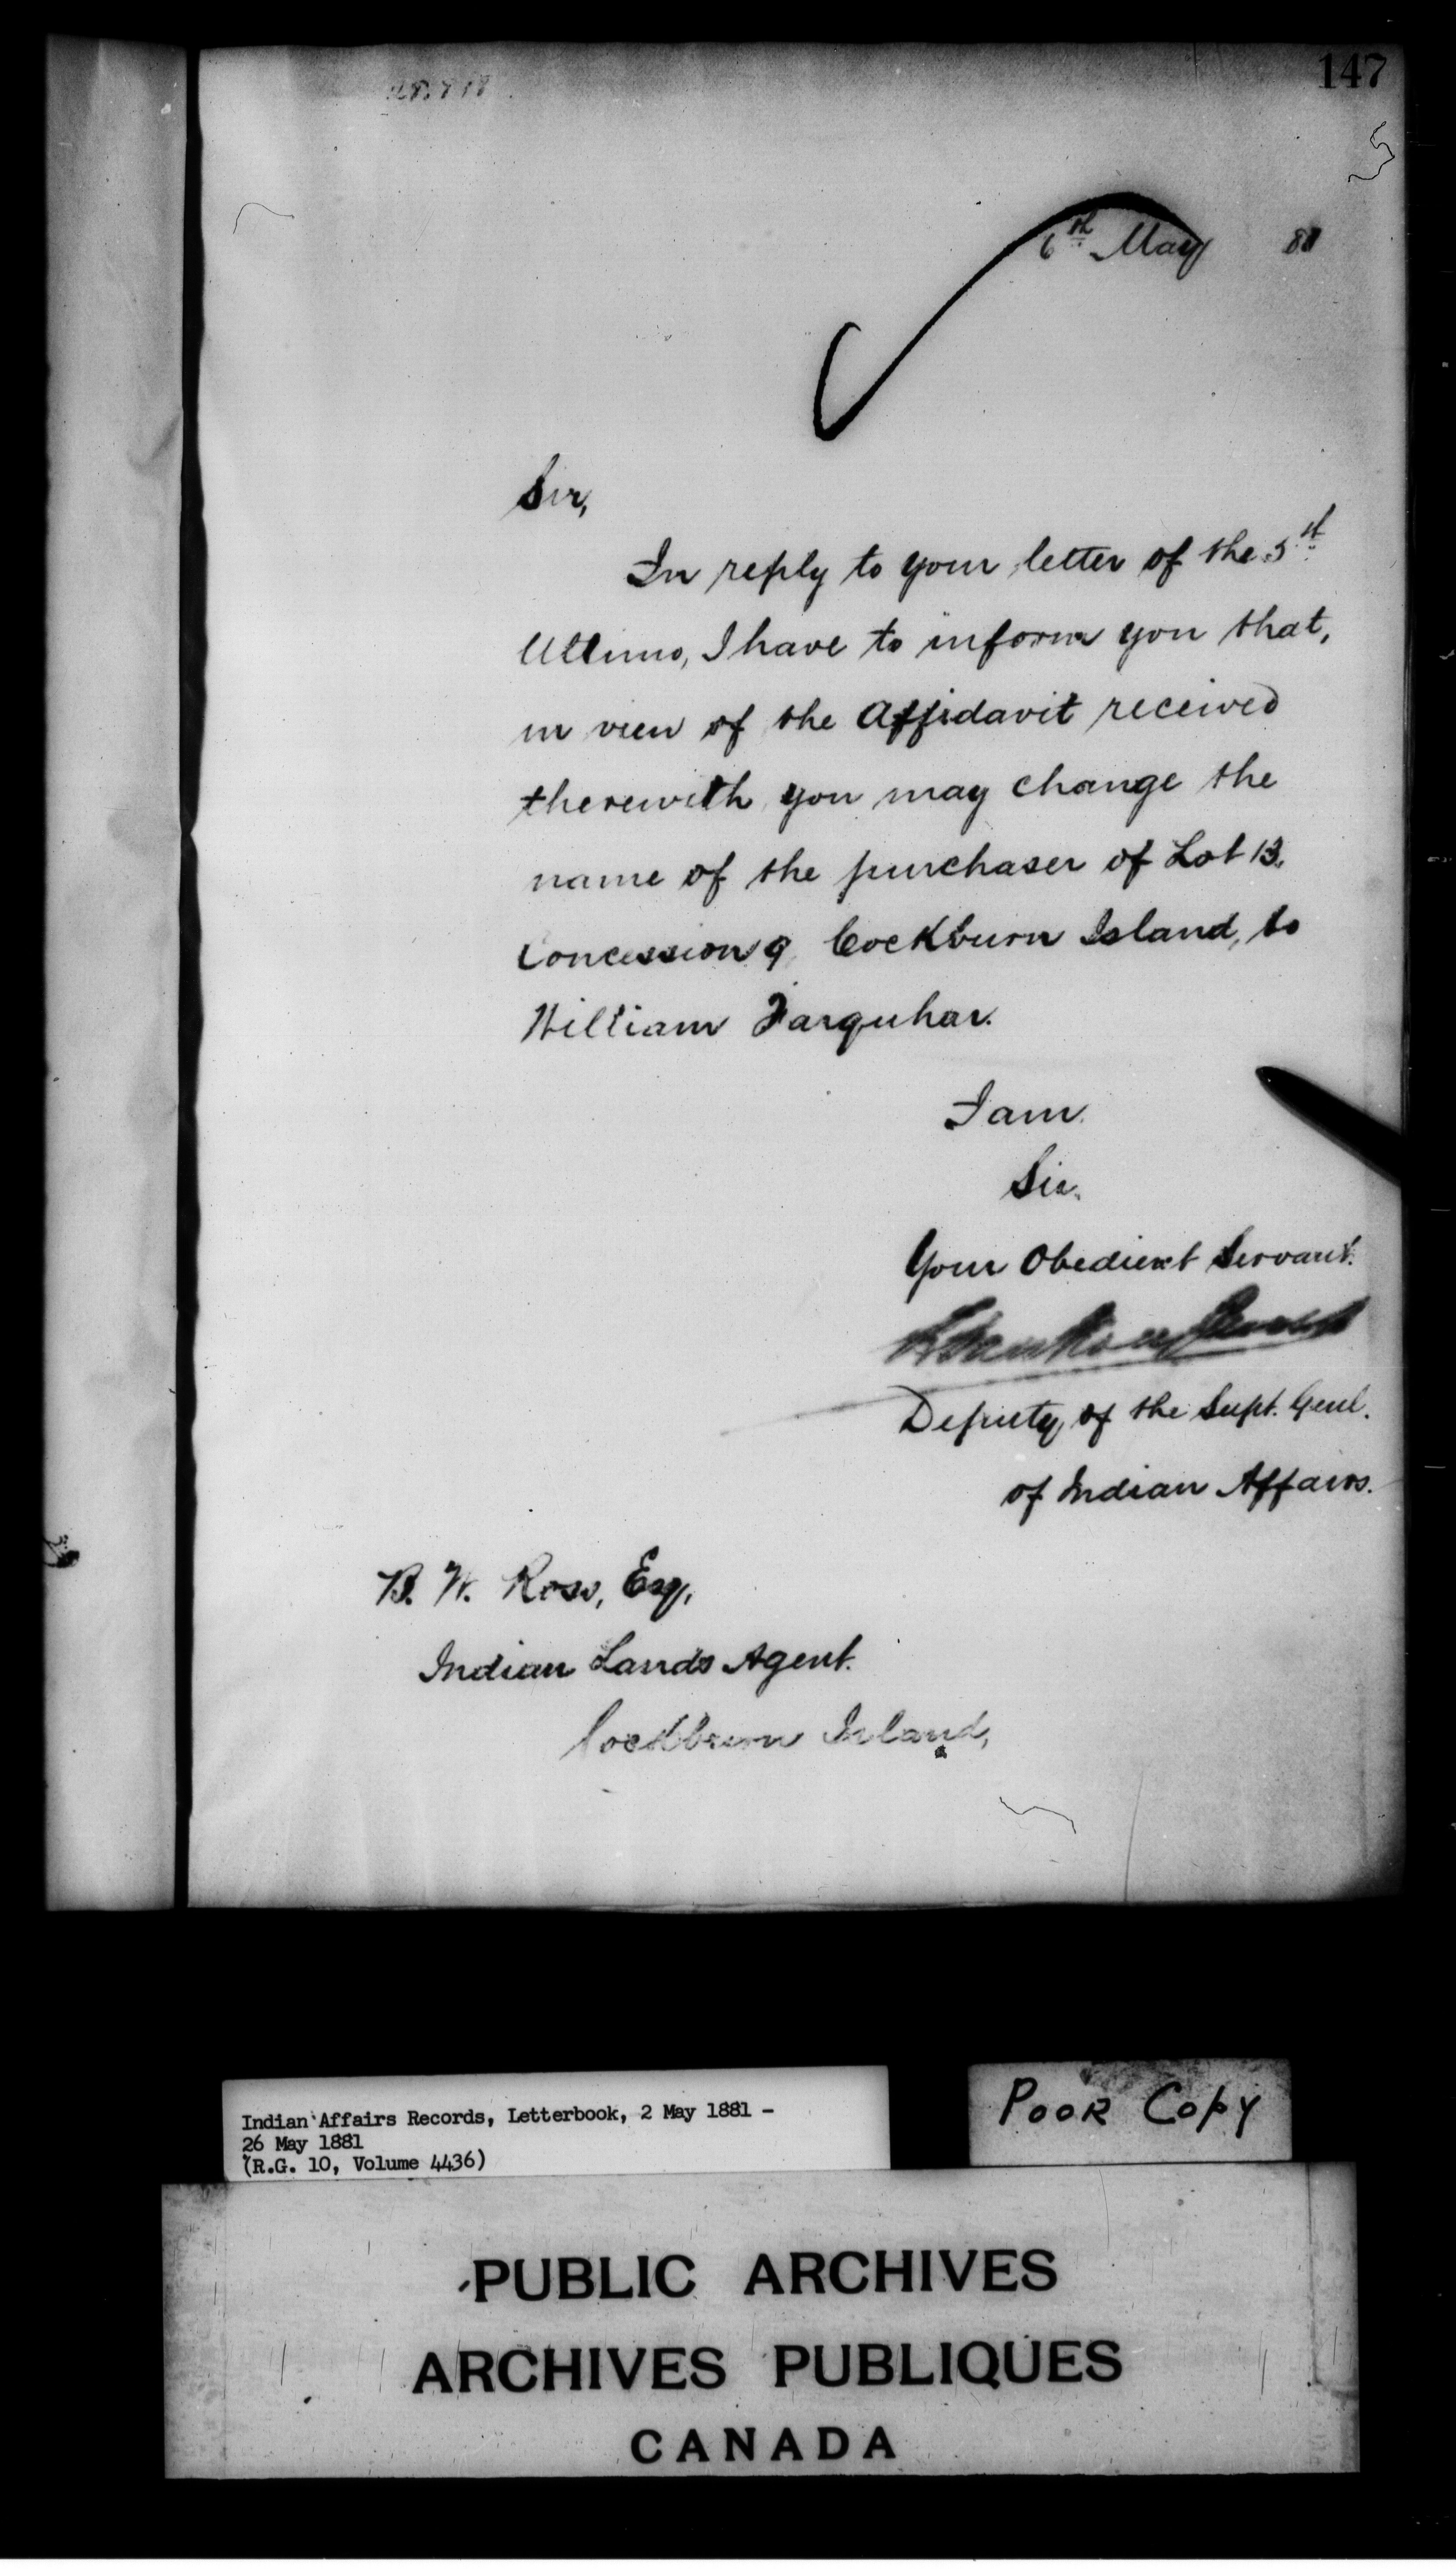 147
6th May 81
Sir,
In reply to your letter of the 5th
Ultimo, I have to inform you that,
in view of the Affidavit received
therewith you may change the
name of the purchaser of Lot 13.
Concession 9, Cockburn Island, to
William Farquhar.
I am.
Sir.
Your Obedient Servant.
Deputy of the Supt. Genl.
of Indian Affairs.
B. W. Ross, Esq,
Indian Lands Agent.
Cockburn Island,
Indian Affairs Records, Letterbook, 2 May 1881 -
26 May 1881
(R.G. 10, Volume 4436)
Poor Copy
PUBLIC ARCHIVES
ARCHIVES PUBLIQUES
CANADA